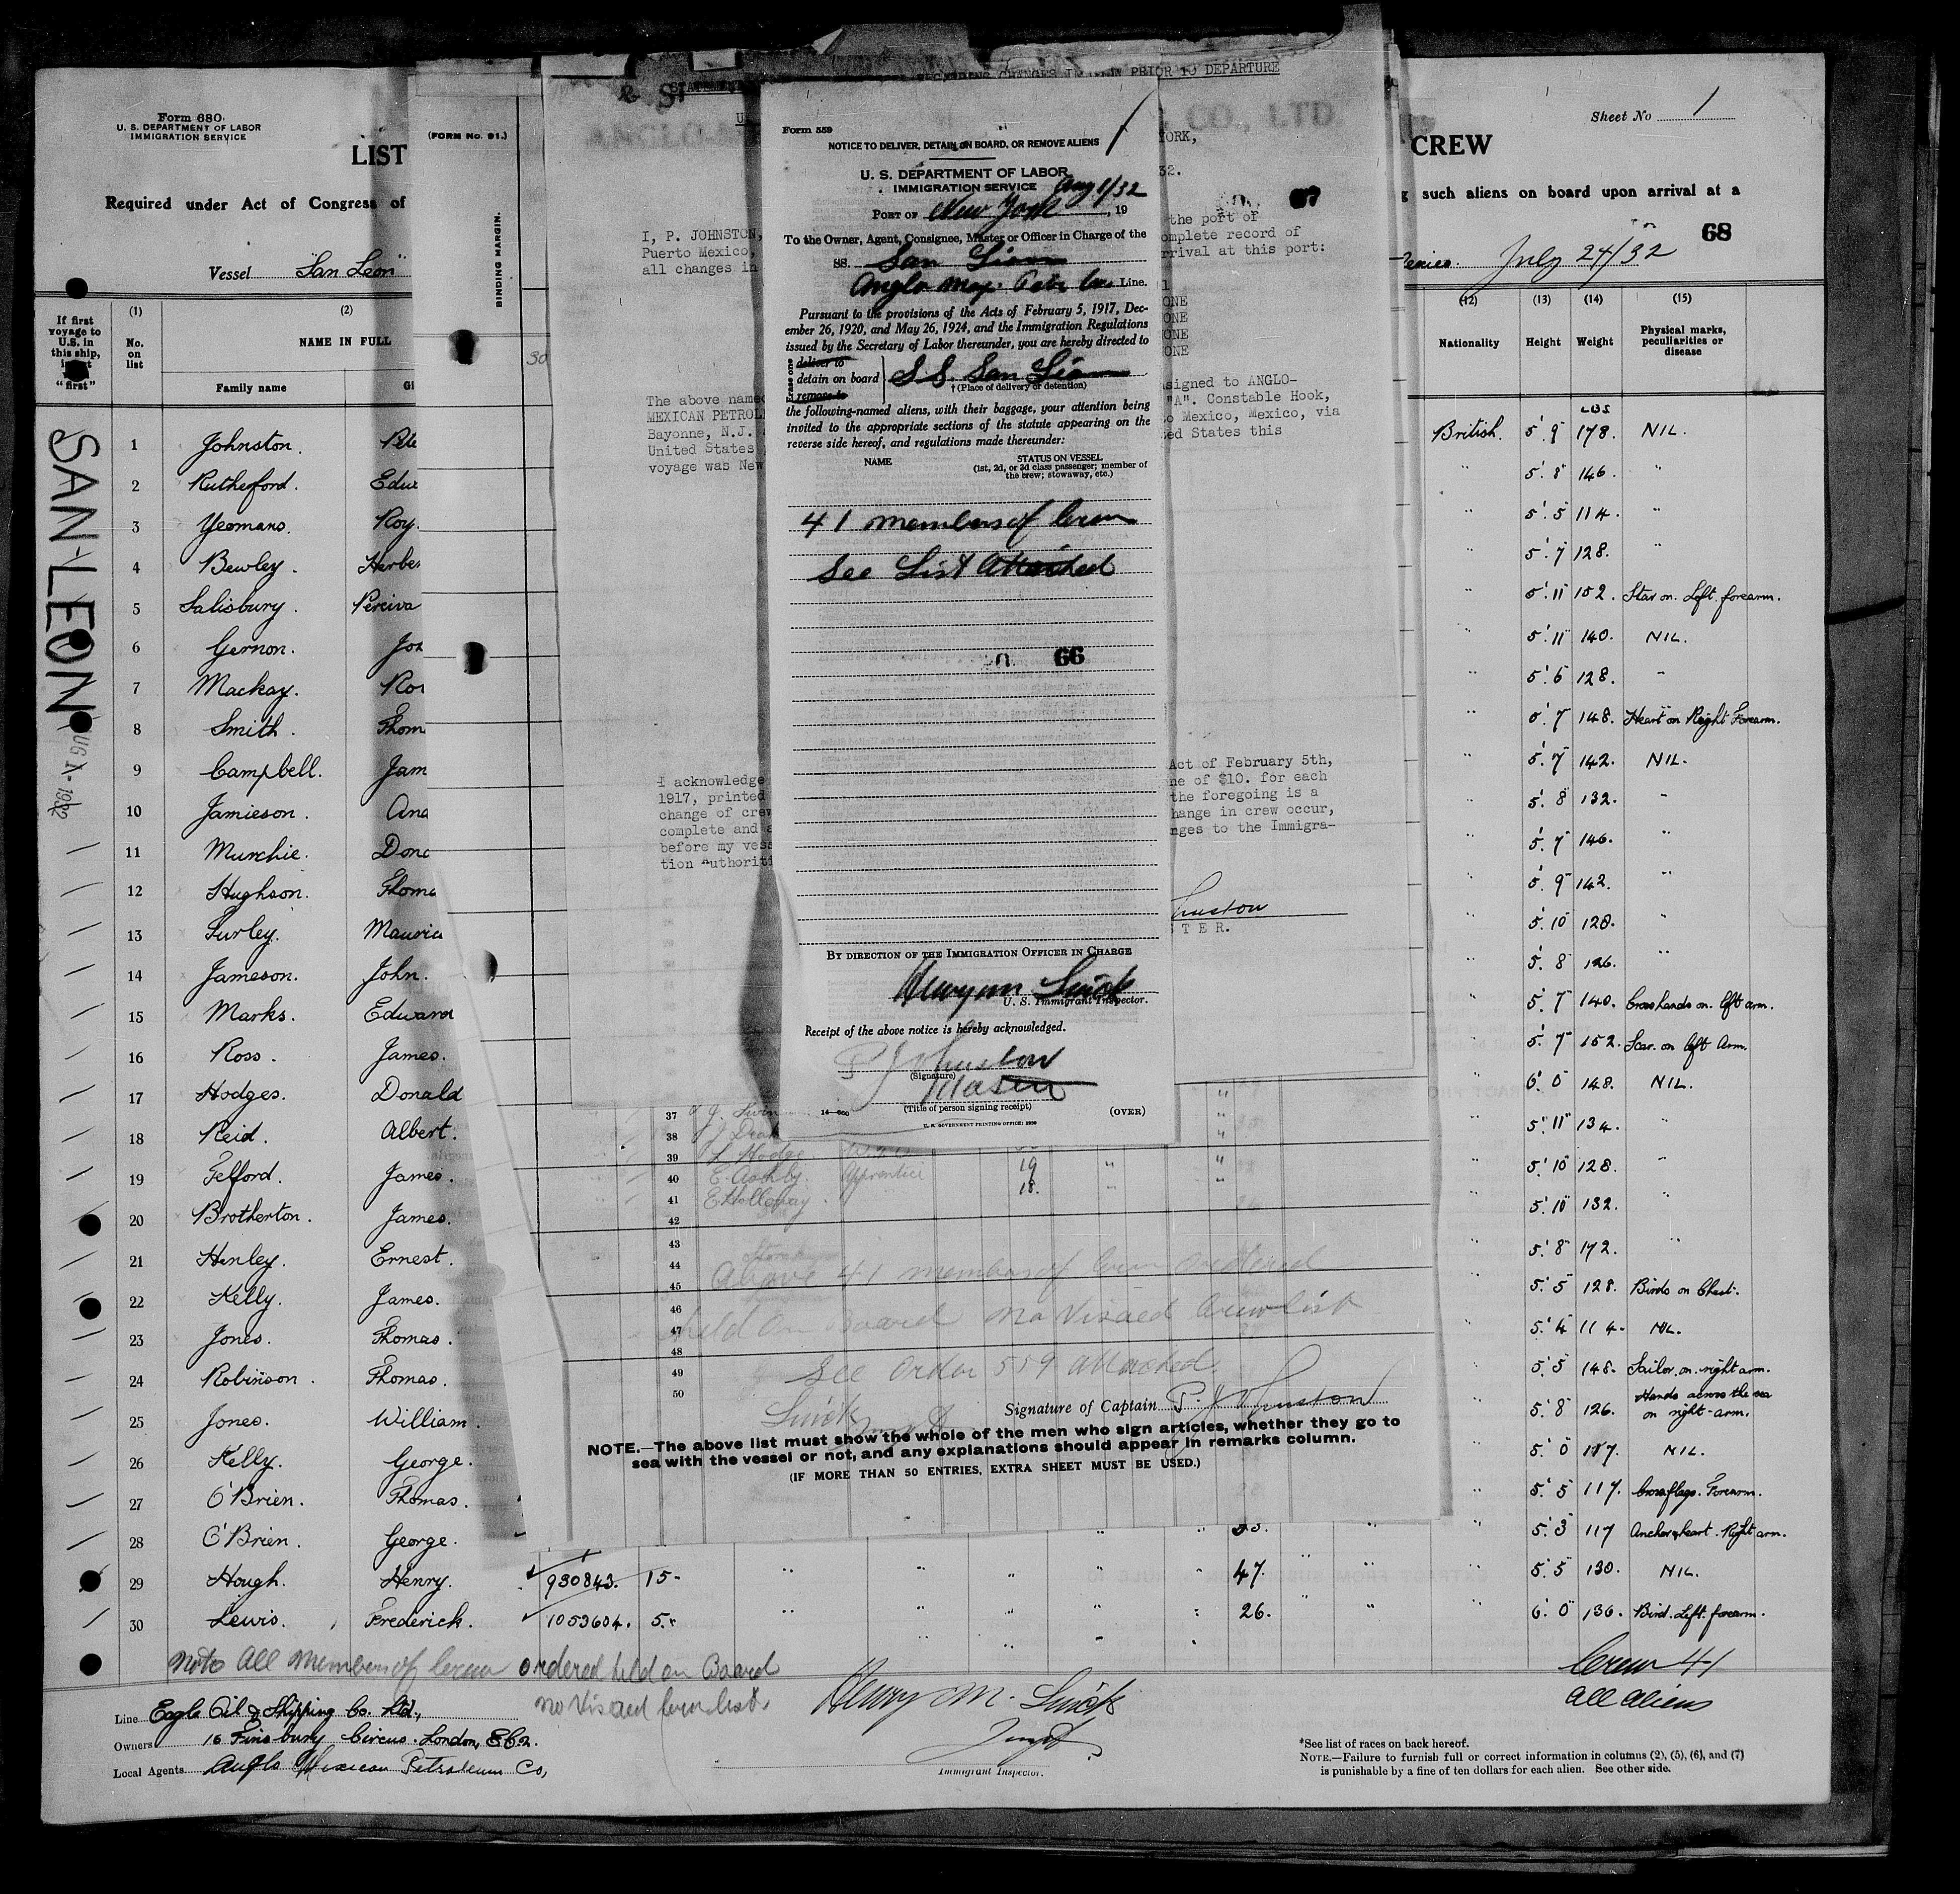 Form 680
U. S. DEPARTMENT OF LABOR
IMMIGRATION SERVICE
LIST
Required under Act of Congress of
Vessel "San Leon"
If first voyage to U.S. in this ship,
"first"
(1)
No. on list
(2)
NAME IN FULL
Family name
SAN LEON
1 Johnston.
2 Rutherford.
3 Yeomans. Roy.
4 Bewley.
5 Salisbury.
6 Gernon.
7 Mackay.
8 Smith.
9 Campbell.
10 Jamieson.
11 Murchie.
12 Hughson.
13
14 Jameson. John.
15 Marks. Edward
16 Ross. James.
17 Hodges. Donald
18 Reid. Albert.
19 Telford. James.
20 Brotherton. James.
21 Henley. Ernest.
22 Kelly. James.
23 Jones. Thomas.
24 Robinson. Thomas.
25 Jones. William.
26 Kelly. George.
27 O'Brien. Thomas.
28 O'Brien. George.
29 Hough. Henry. 930843. 15- " " " " 47. " "
30 Lewis. Frederick. 1053604. 5. " " " 26. " "
Note All members of Crew ordered held on Board
no Visaed Crew list.
Henry M. Smick
Inspt
Immigrant Inspector.
Line Eagle Oil & Shipping Co. Ltd.,
Owners 16 Finsbury Circus. London, E.C.2.
Local Agents Anglo Mexican Petroleum Co,
(FORM No. 91.)
BINDING MARGIN.
30
REGARDING CHANGES IN CREW PRIOR TO DEPARTURE
CO., LTD.
YORK,
32.
67
I, P. JOHNSTON,
Puerto Mexico,
all changes in
the port of
complete record of
arrival at this port:
ONE
ONE
ONE
ONE
The above named
MEXICAN PETROL
Bayonne, N.J.
United States
voyage was New
signed to ANGLO-
"A". Constable Hook,
to Mexico, Mexico, via
ted States this
I acknowledge
1917, printed
change of crew
complete and
before my vess
tion authoriti
Act of February 5th,
ne of $10. for each
the foregoing is a
hange in crew occur,
nges to the Immigra-
TER.
Form 559
NOTICE TO DELIVER, DETAIN ON BOARD, OR REMOVE ALIENS
U. S. DEPARTMENT OF LABOR
IMMIGRATION SERVICE
Aug 1/32
PORT OF New York, 19
To the Owner, Agent, Consignee, Master or Officer in Charge of the
SS. San Leon
Anglo Mex. Petr Co. Line.
Pursuant to the provisions of the Acts of February 5, 1917, Dec-
ember 26, 1920, and May 26, 1924, and the Immigration Regulations
issued by the Secretary of Labor thereunder, you are hereby directed to
deliver to
detain on board S.S. San Leon
remove to
† (Place of delivery or detention)
the following-named aliens, with their baggage, your attention being
invited to the appropriate sections of the statute appearing on the
reverse side hereof, and regulations made thereunder:
NAME
STATUS ON VESSEL
(1st, 2d, or 3d class passenger; member of
the crew; stowaway, etc.)
41 members of Crew
See List Attached
66
BY DIRECTION OF THE IMMIGRATION OFFICER IN CHARGE
Henry M Smick
U. S. Immigrant Inspector.
Receipt of the above notice is hereby acknowledged.
P Johnston
(Signature)
Master
(Title of person signing receipt)
(OVER)
U. S. GOVERNMENT PRINTING OFFICE
37
38
39 Hodge
40 E. Ashby. Apprentice 19 " "
41 E Holloway. 18. " "
42
43
44
45
46
47
48
49
50
Above 41 members of Crew ordered
held on Board no Visaed Crew list
See Order 559 attached.
Smick
Signature of Captain P. Johnston
NOTE.—The above list must show the whole of the men who sign articles, whether they go to
sea with the vessel or not, and any explanations should appear in remarks column.
(IF MORE THAN 50 ENTRIES, EXTRA SHEET MUST BE USED.)
Sheet No 1
CREW
such aliens on board upon arrival at a
68
July 24/32
(12) (13) (14) (15)
Nationality Height Weight Physical marks, peculiarities or disease
LBS
British. 5' 9" 178. NIL.
" 5' 8" 146. "
" 5' 5" 114. "
" 5' 7" 128. "
" 5' 11" 152. Star on. Left forearm.
" 5' 11" 140. NIL.
" 5' 6" 128. "
5' 7" 148. Heart on Right Forearm.
" 5' 7" 142. NIL.
" 5' 8" 132. "
" 5' 7" 146. "
" 5' 9" 142. "
" 5' 10" 128. "
" 5' 8" 126. "
" 5' 7" 140. Cross hands on. left arm.
" 5' 7" 152. Scar. on left Arm.
" 6' 0" 148. NIL.
" 5' 11" 134. "
" 5' 10" 128. "
" 5' 10" 132. "
" 5' 8" 172. "
" 5' 5" 128. Birds on Chest.
" 5' 4" 114. NIL.
" 5' 5" 148. Sailor. on. right arm.
" 5' 8" 126. Hands across the sea on right arm.
" 5' 0" 117. NIL.
" 5' 5" 117. Cross flags. Forearm.
" 5' 3" 117 Anchor & heart. Right arm.
" 5' 5" 130. NIL.
" 6' 0" 136. Bird. Left. forearm.
Crew 41
All aliens
*See list of races on back hereof.
NOTE.—Failure to furnish full or correct information in columns (2), (5), (6), and (7)
is punishable by a fine of ten dollars for each alien. See other side.